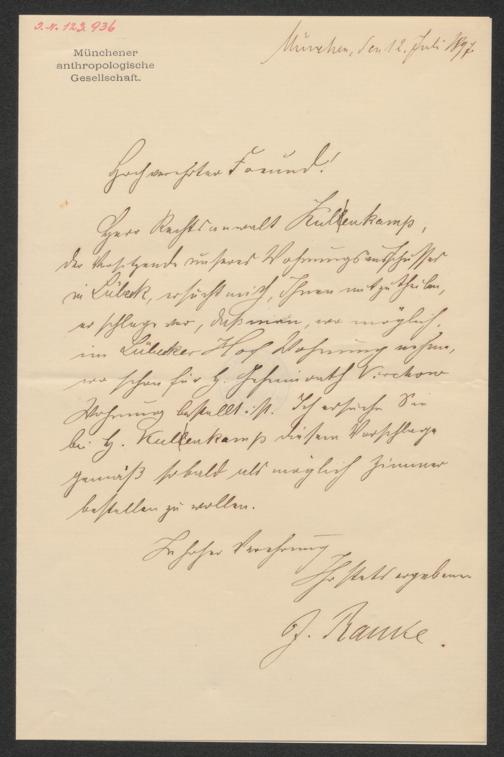 J. N. 123.936
Münchener
anthropologische
Gesellschaft.
München, den 12. Juli 1897.
Hochverehrter Freund!
Herr Rechtsanwalt Kullenkamp,
der Vorsitzende unseres Wohnungsausschusses
in Lübeck, ersucht mich, Ihnen mitzutheilen,
er schlage vor, daß man, wo möglich,
im Lübecker Hof Wohnung nehme,
wo schon für H. Geheimrath Virchow
Wohnung bestellt ist. Ich ersuche Sie
bei H. Kullenkamp diesem Vorschlage
gemäß sobald als möglich Zimmer
bestellen zu wollen.
In hoher Verehrung
Ihr stets ergebener
J. Ranke.